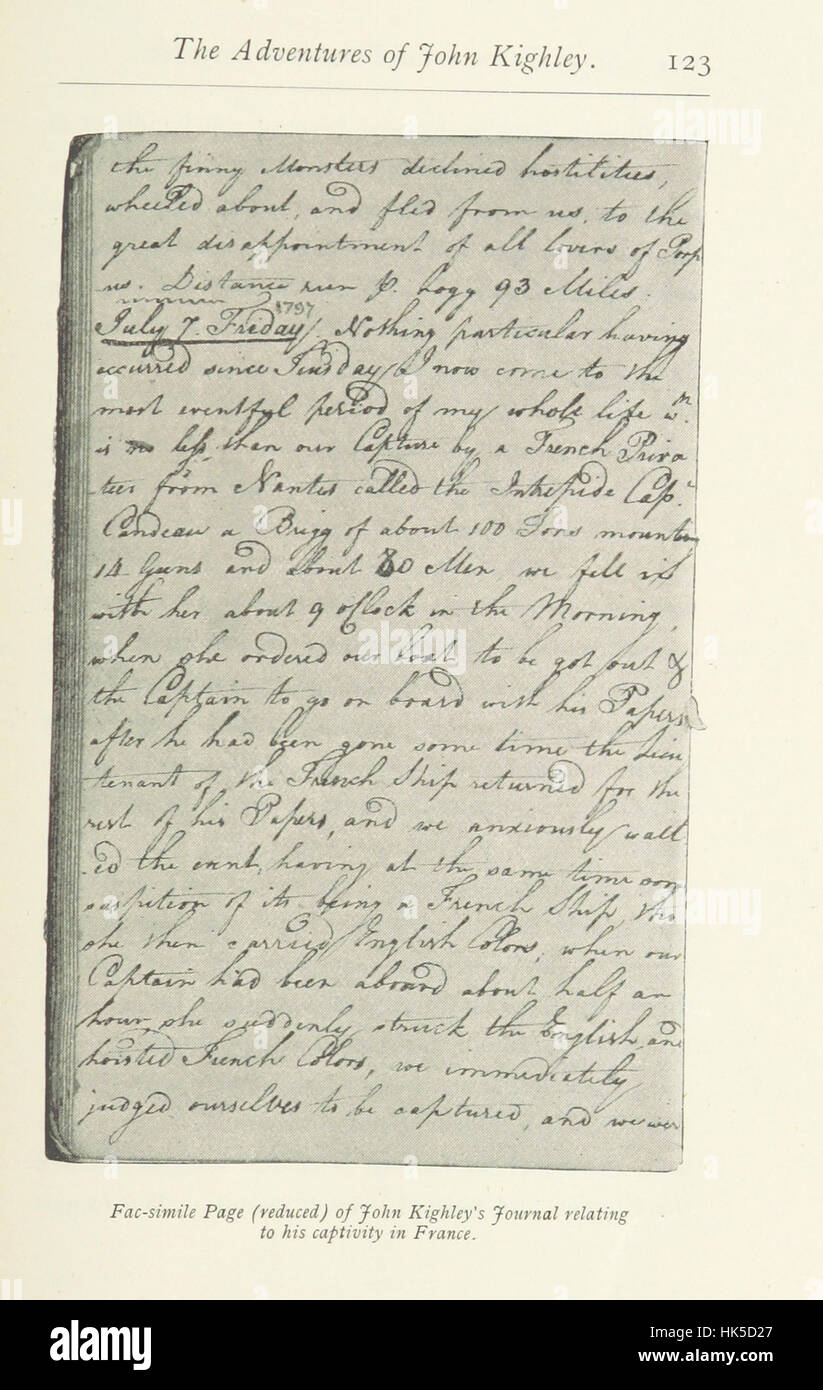 The Adventures of John Kighley. 123
the finny Monsters declined hostilities,
wheeled about, and fled from us, to the
great disappointment of all lovers of Porp
us. Distance run P. Logg 93 Miles.
1797
July 7. Friday Nothing particular having
occurred since Tuesday I now come to the
most eventful period of my whole life wh.
is no less than our Capture by a French Priva
teer from Nantes called the Intrepide Capn.
Candeau a Brigg of about 100 Tons mounting
14 Guns and about 80 Men we fell in
with her about 9 oClock in the Morning,
when she ordered our boat to be got out &
the Captain to go on board with his Papers
after he had been gone some time the Lieu
tenant of the French Ship returned for the
rest of his Papers, and we anxiously wait
ed the event, having at the same time some
suspition of its being a French Ship, tho
she then carried English Colors, when our
Captain had been aboard about half an
hour she suddenly struck the English and
hoisted French Colors, we immediately
judged ourselves to be captured, and we wer
Fac-simile Page (reduced) of John Kighley's Journal relating
to his captivity in France.
alamy
Image ID: HK5D27
www.alamy.com